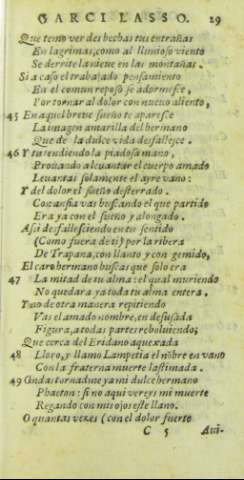 GARCI LASSO. 29
Que temo ver deshechas tus entrañas
En lagrimas, como al lluuioso viento
Se derrite la nieue en las montañas.
Si acaso el trabajado pensamiento
En el comun reposo se adormesce,
Por tornar al dolor con nueuo aliento,
45 En aquel breue sueño te aparesce
La imagen amarilla del hermano
Que de la dulce vida desfallesce.
46 Y tu tendiendo la piadosa mano,
Prouando a leuantar el cuerpo amado
Leuantas solamente el ayre vano:
Y del dolor el sueño desterrado.
Con ansia vas buscando el que partido
Era ya con el sueño y alongado.
Assi desfallesciendo en tu sentido
(Como fuera de ti) por la ribera
De Trapana, con llanto y con gemido,
El caro hermano buscas que solo era
47 La mitad de tu alma: el qual muriendo
No quedara ya toda tu alma entera,
Y no de otra manera repitiendo
Vas el amado nombre, en desusada
Figura, a todas partes reboluiendo;
Que cerca del Eridano aquexada
48 Lloro, y llamo Lampetia el nõbre en vano
Con la fraterna muerte lastimada.
49 Ondas tornadme ya mi dulce hermano
Phaeton: si no aqui vereys mi muerte
Regando con mis ojos este llano.
O quantas vezes (con el dolor fuerte
C 5 Aui-